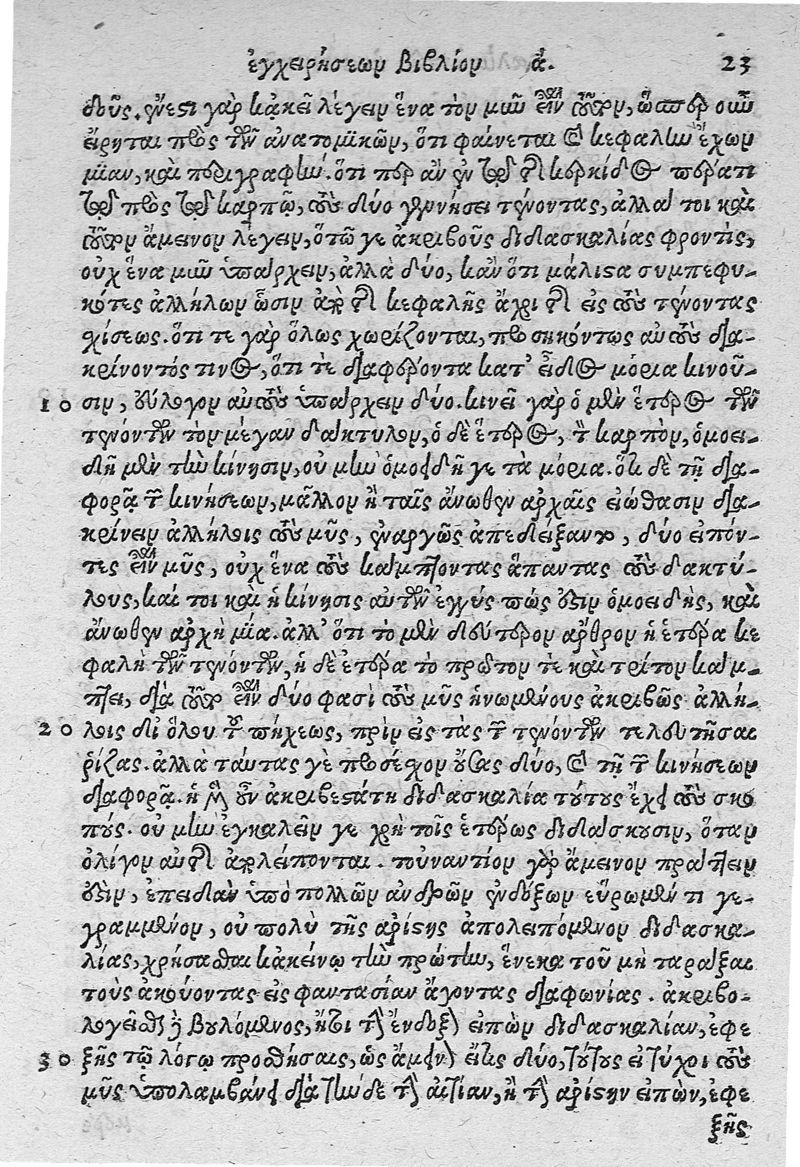 ἐγχειρήσεων βιβλίον α. 23
δοῦς. ἔνεστι γὰρ κἀκεῖ λέγειν ἕνα τὸν μῦν εἶναι τοῦτον, ὥσπερ οὖν
εἴρηται πρὸς τῶν ἀνατομικῶν, ὅτι φαίνεται καὶ κεφαλὴν ἔχων
μίαν, καὶ περιγραφήν. ὅτι περ ἂν ἐν τῷ τῆς κερκίδος πέρατι
τῷ πρὸς τῷ καρπῷ, τοὺς δύο γεννήσει τένοντας, ἀλλά τοι καὶ
τοῦτον ἄμεινον λέγειν, ὅτῳ γε ἀκριβοῦς διδασκαλίας φροντὶς,
οὐχ ἕνα μῦν ὑπάρχειν, ἀλλὰ δύο, κἂν ὅτι μάλιστα συμπεφυ-
κότες ἀλλήλων ὦσιν ἀπὸ τῆς κεφαλῆς ἄχρι τῆς εἰς τοὺς τένοντας
σχίσεως. ὅτι τε γὰρ ὅλως χωρίζονται, προσηκόντως αὐτοὺς δια-
κρίνοντός τινος, ὅτι τὲ διαφέροντα κατ' εἶδος μόρια κινοῦ-
10 σιν, εὔλογον αὐτοὺς ὑπάρχειν δύο. κινεῖ γὰρ ὁ μὲν ἕτερος τῶν
τενόντων τὸν μέγαν δάκτυλον, ὁ δὲ ἕτερος, τὸν καρπὸν, ὁμοει-
δῆ μὲν τὴν κίνησιν, οὐ μὴν ὁμοειδῆ γε τὰ μόρια. ὅτι δὲ τῇ δια-
φορᾷ τῶν κινήσεων, μᾶλλον ἢ ταῖς ἄνωθεν ἀρχαῖς εἰώθασιν δια-
κρίνειν ἀλλήλοις τοὺς μῦς, ἐναργῶς ἀπεδείξαντο, δύο εἰπόν-
τες εἶναι μῦς, οὐχ ἕνα τοὺς κάμπτοντας ἅπαντας τοὺς δακτύ-
λους, καί τοι καὶ ἡ κίνησις αὐτῶν ἐγγύς πώς ἐστιν ὁμοειδὴς, καὶ
ἄνωθεν ἀρχὴ μία. ἀλλ' ὅτι τὸ μὲν δεύτερον ἄρθρον ἡ ἑτέρα κε
φαλὴ τῶν τενόντων, ἡ δὲ ἑτέρα τὸ πρῶτον τὲ καὶ τρίτον κάμ-
πτει, διὰ τοῦτο εἶναι δύο φασὶ τοὺς μῦς ἡνωμένους ἀκριβῶς ἀλλή-
20 λοις δι' ὅλου τοῦ πήχεως, πρὶν εἰς τὰς τῶν τενόντων τελευτῆσαι
ῥίζας. ἀλλὰ ταύτας γὲ προσέσχον οὔσας δύο, καὶ τῇ τῶν κινήσεων
διαφορᾷ. ἡ μὲν οὖν ἀκριβεστάτη διδασκαλία τούτους ἔχει τοὺς σκο
πούς. οὐ μὴν ἐγκαλεῖν γε χρὴ τοῖς ἑτέρως διδάσκουσιν, ὅταν
ὀλίγον αὐτῆς ἀπολείπονται. τοὐναντίον γὰρ ἄμεινον πράττειν
ἐστὶν, ἐπειδὰν ὑπὸ πολλῶν ἀνδρῶν ἐνδόξων εὕρωμέν τι γε-
γραμμένον, οὐ πολὺ τῆς ἀρίστης ἀπολειπόμενον διδασκα-
λίας, χρῆσασθαι κἀκείνῳ τὴν πρώτην, ἕνεκα τοῦ μὴ ταράξαι
τοὺς ἀκούοντας εἰς φαντασίαν ἄγοντας διαφωνίας. ἀκριβο-
λογεῖσθαι δὲ βουλόμενος, ἤτοι τὴν ἔνδοξον εἰπὼν διδασκαλίαν, ἐφε
30 ξῆς τῷ λόγῳ προσθήσαις, ὡς ἄμεινον εἴης δύο, τούτους εἰ τύχοι τοὺς
μῦς ὑπολαμβάνειν διὰ τήνδε τὴν αἰτίαν, ἢ τὴν ἀρίστην εἰπὼν, ἐφε
ξῆς